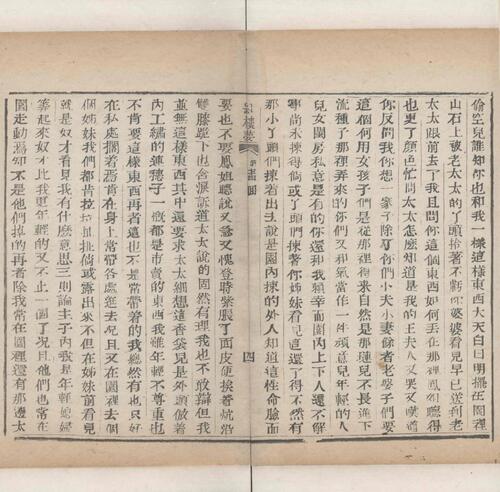 偷空兒誰知你也和我一樣這樣東西大天白日明擺在園裡
山石上被老太太的了頭拾著不虧你婆婆看見早已送到老
太太跟前去了我且問你這個東西如何丟在那裡鳳姐聽得
也更了顏色忙問太太怎麼知道是我的王夫人又哭又嘆道
你反問我你想一家子除了你們小夫小妻餘者老婆子們要
這個何用女孩子們是從那裡得來自然是那璉兒不長進下
流種子那裡弄來的你們又和氣當作一件頑意兒年輕的人
兒女閨房私意是有的你還和我賴幸而園內上下人還不解
事尚未揀得倘或了頭們揀著你姊妹看見這還了得不然有
那小了頭們揀著出去說是園內揀的外人知道這性命臉面
紅樓夢 四
要也不要鳳姐聽說又急又愧登時紫脹了面皮便挨著炕沿
雙膝跪下也含淚訴道太太說的固然有理我也不敢辯但我
並無這樣東西其中還要求太太細想這香袋兒是外頭倣着
內工繡的連穗子一概都是市賣的東西我雖年輕不尊重也
不肯要這樣東西再者這也不是常帶着的我縱然有也只好
在私處擱着焉肯在身上常帶各處逛去況且又在園裡去個
個姊妹我們都肯拉拉扯扯倘或露出來不但在姊妹前看見
就是奴才看見我有什麽意思三則論主子內我是年輕媳婦
算起來奴才比我更年輕的又不止一個了況且他們也常在
園走動焉知不是他們掉的再者除我常在園裡還有那邊太